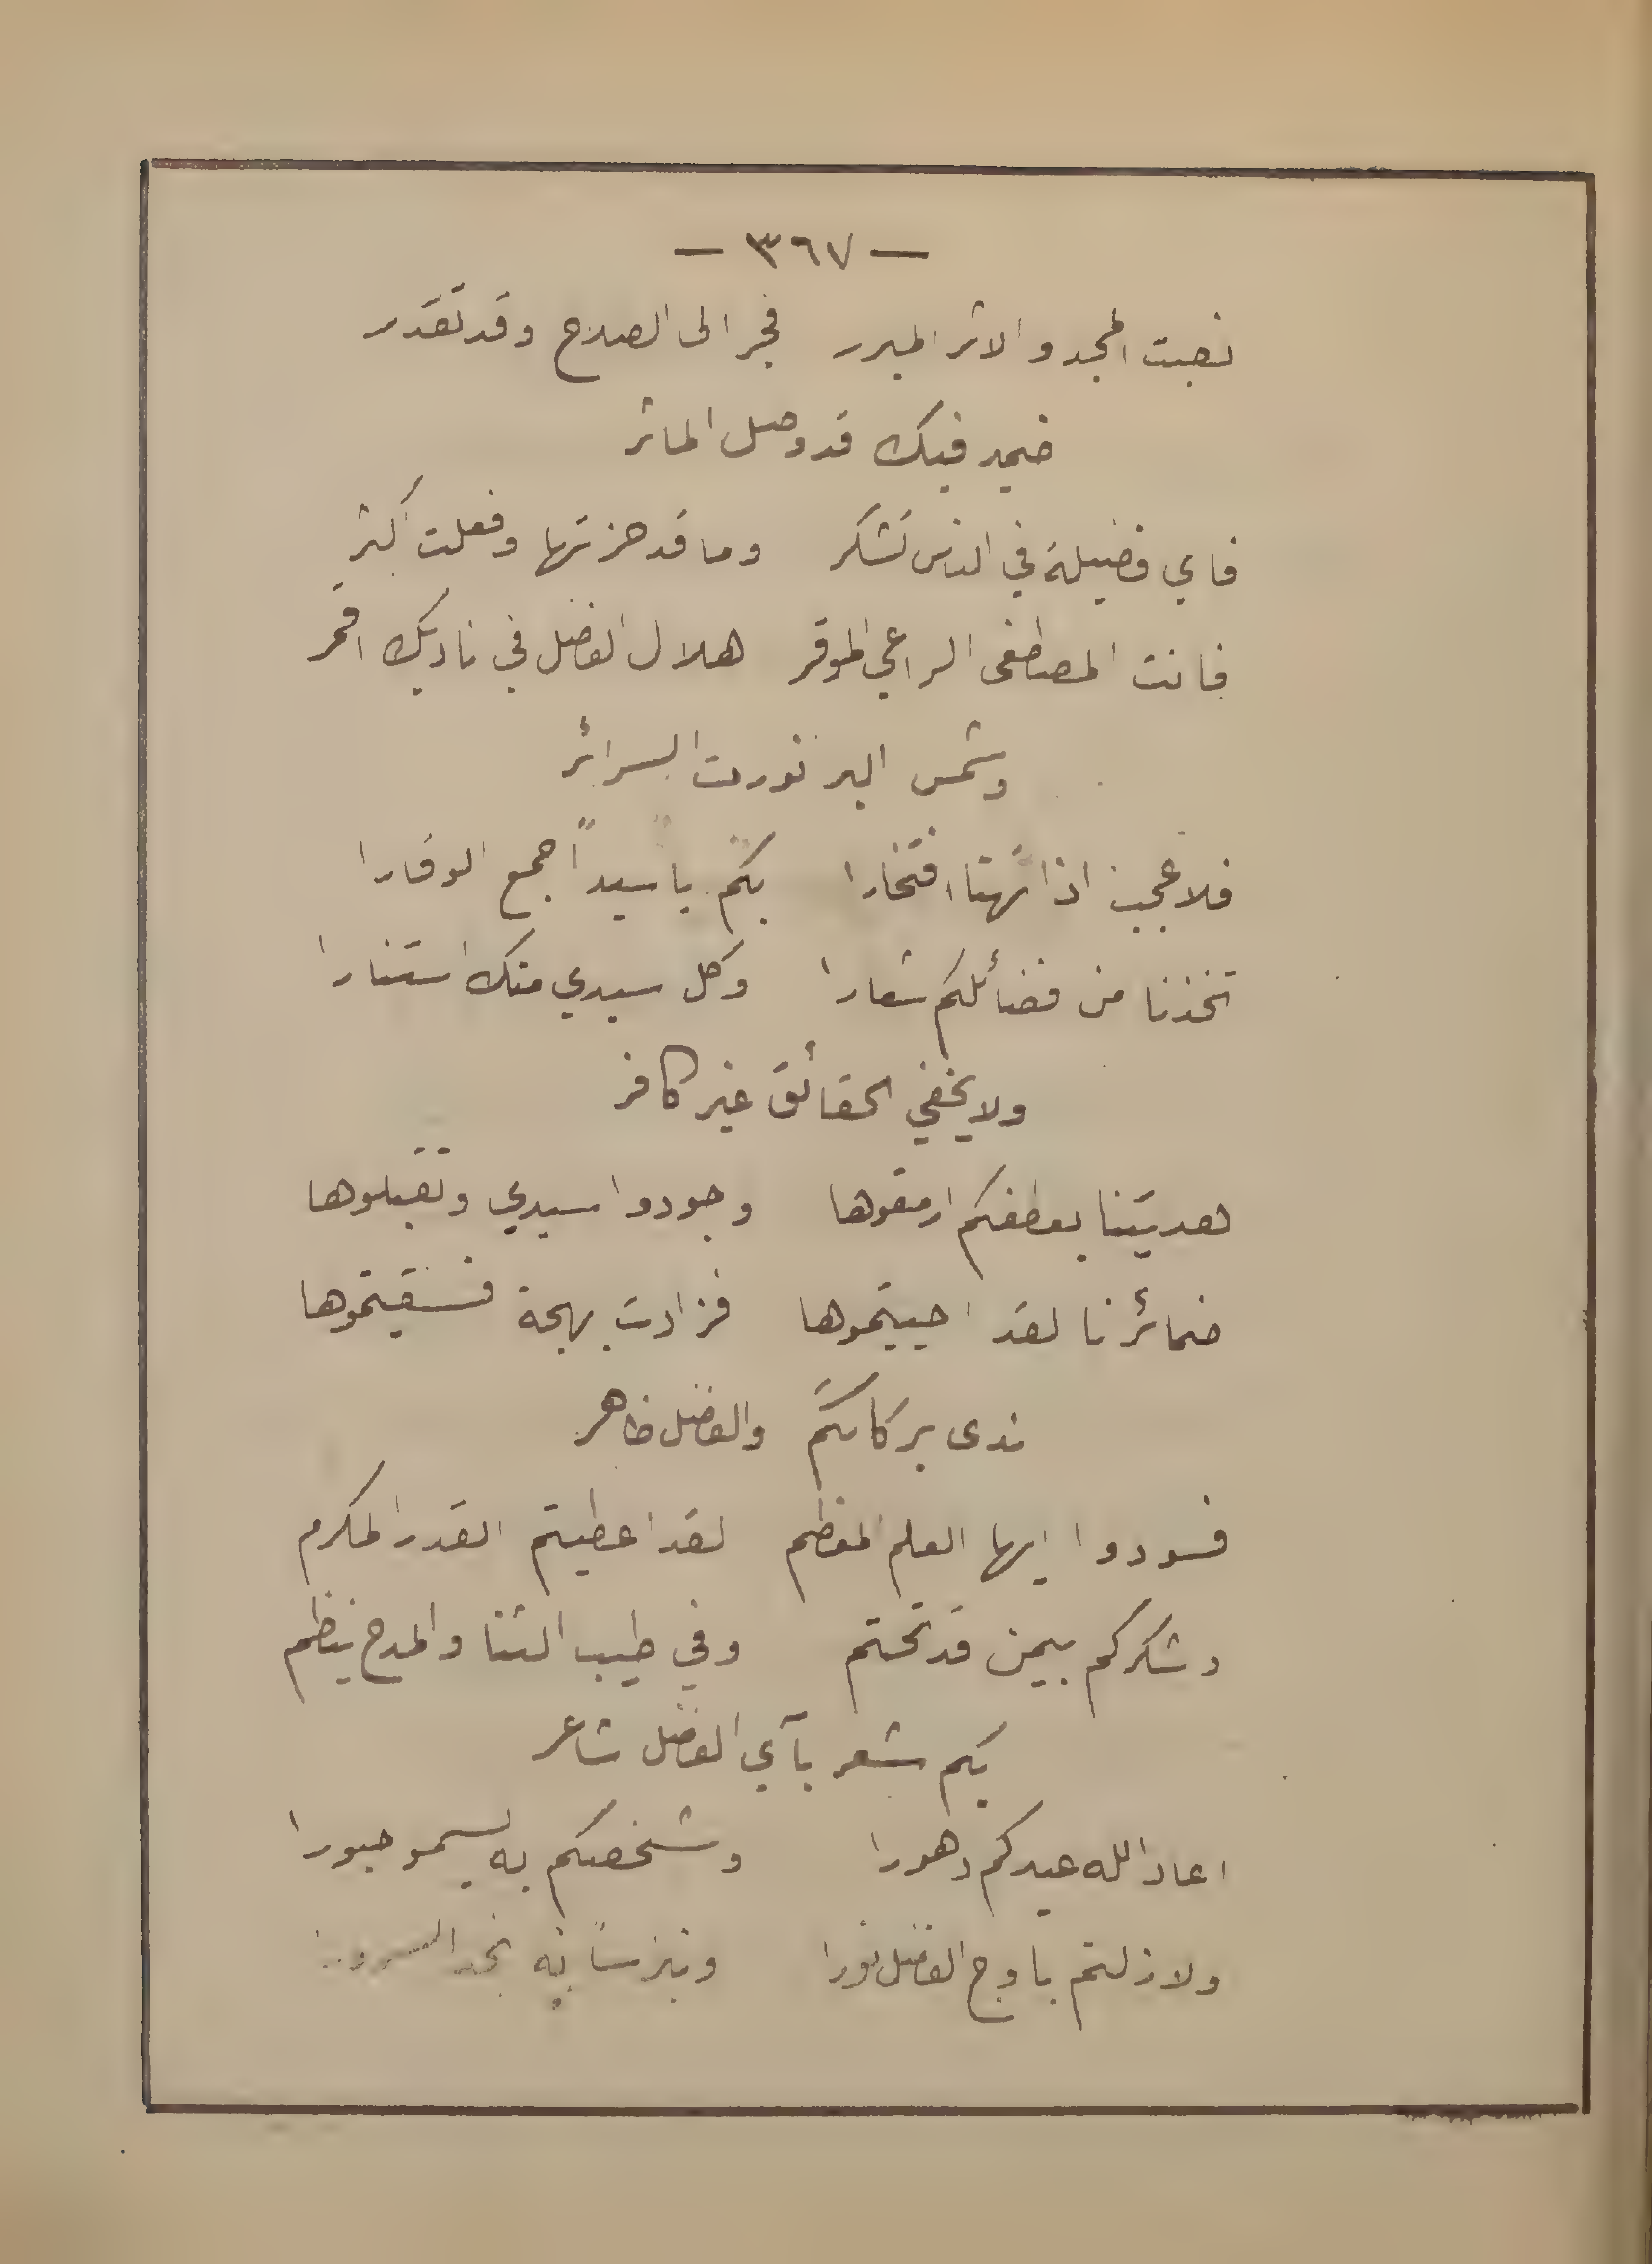 — ٣٦٧ —
نصبت المجد والاثر المبرر فجر الى الصلاح وقد تقدر
ضمير فيك قد وصل الماثر
فاي فضيلة في الناس تشكر وما قد حزتها وفعلت اكثر
فانت المصطفى الراعي الموقر هلال الفضل في ناديك اقمر
وشمس البر نورت السرائر
فلا عجب اذا تهنا افتخارا بكم يا سيداً جمع الوقارا
تخذنا من فضائلكم شعارا وكل سيدي منك استنارا
ولا يخفي الحقائق غير كافر
هديتنا بعطفكم ارمقوها وجودوا سيدي وتقبلوها
ضمائرنا لقد احييتموها فزادت بهجة فسقيتموها
ندى بركاتكم والفضل ظاهر
فسودوا ايها العلم المعظم لقد اعطيتم القدر المكرم
وشكركم بيمن قد تحتم وفي طيب الثنا والمدح ينظم
بكم شعر بآي الفضل شاعر
اعاد الله عيدكم دهورا وشخصكم به يسمو حبورا
ولا زلتم باوج الفضل نورا به نجد السرورا